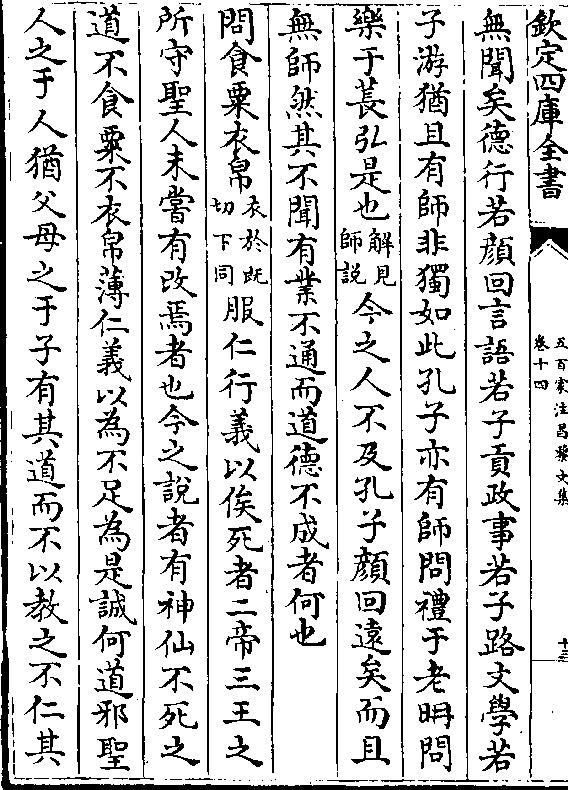 欽定四庫全書
五百家注昌黎文集
卷十四
十三
無聞矣德行若顔回言語若子貢政事若子路文學若
子游猶且有師非獨如此孔子亦有師問禮于老耼問
樂于萇弘是也解見師説今之人不及孔子顔回遠矣而且
無師然其不聞有業不通而道德不成者何也
問食粟衣帛衣於既切下同服仁行義以俟死者二帝三王之
所守聖人未嘗有改焉者也今之說者有神仙不死之
道不食粟不衣帛薄仁義以為不足為是誠何道邪聖
人之于人猶父母之于子有其道而不以教之不仁其